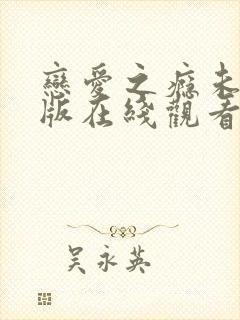 戀愛之癮未
版在綫觀看
吴永英